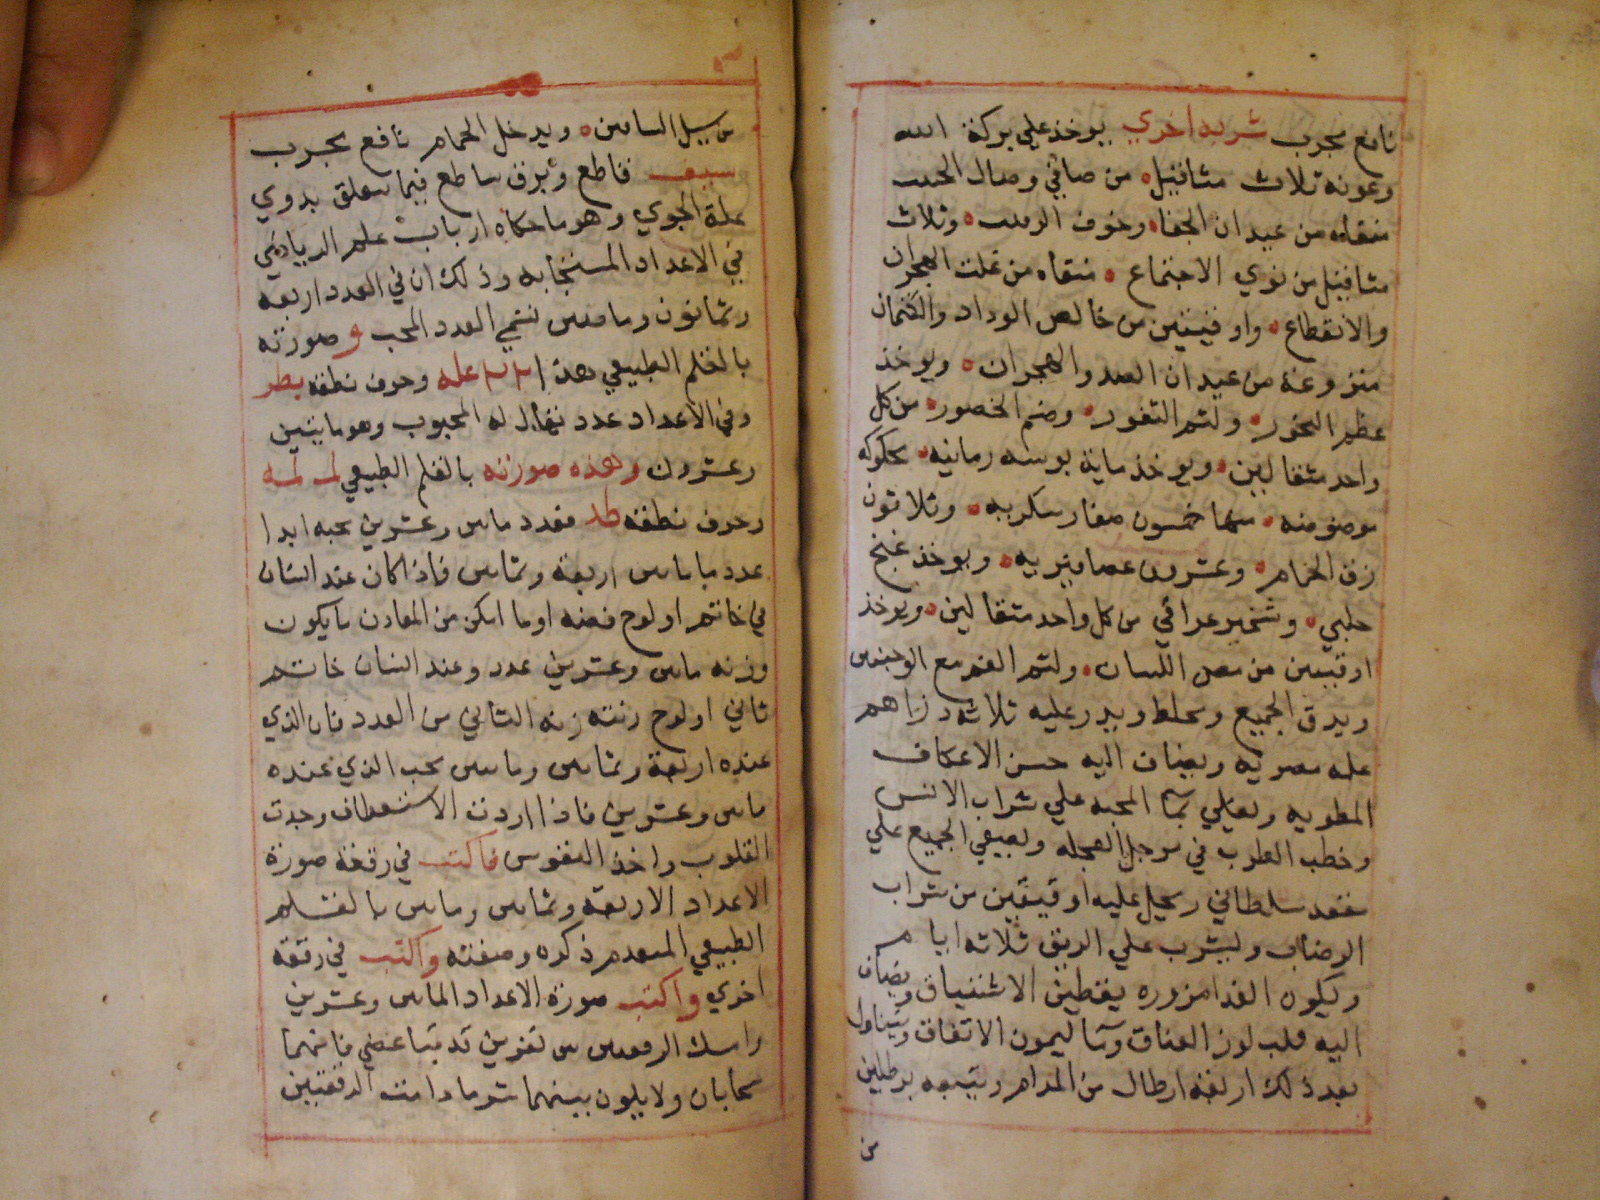 نافع مجرب شربه اخري يوخذ علي بركة الله
وعونه ثلاث مثاقيل من صافي وصال الحبيب
منقاه من عيدان الجفا وخوف الرقيب وثلاث
مثاقيل من نوي الاجتماع منقاه من غلت الهجران
والانقطاع واوقيتين من خالص الوداد والكتمان
منزوعة من عيدان الصد والهجران ويوخذ
عطر البخور ولثم الثغور وضم الخصور من كل
واحد مثقالين ويوخذ ماية بوسه رمانيه محكوكه
منها خمسون صغار سكريه وثلاثون
زق الحمام وعشرون عصافيريه ويوخذ غنج
حلبي وشخير عراقي من كل واحد مثقالين ويوخذ
اوقيتين من مص اللسان ولثم الفم مع الوجنتين
ويدق الجميع ويخلط ويدر عليه ثلاثة دراهم
مصريه ويضاف اليه حسن الاعكاف
المطويه ويغلي بماء المحبه علي شراب الانس
وحطب الطرب في مرجل العجله ويصفي الجميع علي
عقد سلطاني ويحل عليه اوقيتين من شراب
الرضاب وليشرب علي الريق ثلاثة ايام
وليكون الغدا مزوره يقطين الاشتياق ويضاف
اليه قلب لوز العناق وماء ليمون الاتفاق ويتناول
بعد ذلك اربعة ارطال من المدام ويتبعه برطلين
من
من سيل الساقين ويدخل الحمام نافع مجرب
سيف قاطع وبرق ساطع فيما يتعلق بدوي
علة الجوي وهو ما حكاه ارباب علم الرياضي
في الاعداد المتحابه وذلك ان في العدد اربعة
وثمانون ومايتين لتسمي العدد المحب وصورته
بالقلم الطبيعي وحرف نطقه
وفي الاعداد عدد يقال له المحبوب وهو مايتين
وعشرون وهذه صورته بالقلم الطبيعي
وحرف نطقه فعدد مايتين وعشرين محبه ابدا
عدد مايتين اربعة وثمانين فاذا كان عند انسان
في خاتم او لوح فضه او ما امكن من المعادن ما يكون
وزنه مايتين وعشرين عدد وعند انسان خاتم
ثاني او لوح زنته زنه الثاني من العدد فان الذي
عنده اربعة وثمانين ومايتين يحب الذي عنده
مايتين وعشرين فاذا اردت الاستعطاف وجدب
القلوب واخذ النفوس فاكتب في رقعة صورة
الاعداد الاربعة وثمانين ومايتين بالقلم
الطبيعي المتقدم ذكره وصفته واكتب في رقعة
اخري واكتب صورة الاعداد المايتين وعشرين
وامسك الرقعتين من نفرين قد تباغضي فانهما
يتحابان ولا يكون بينهما شر ما دامت الرقعتين